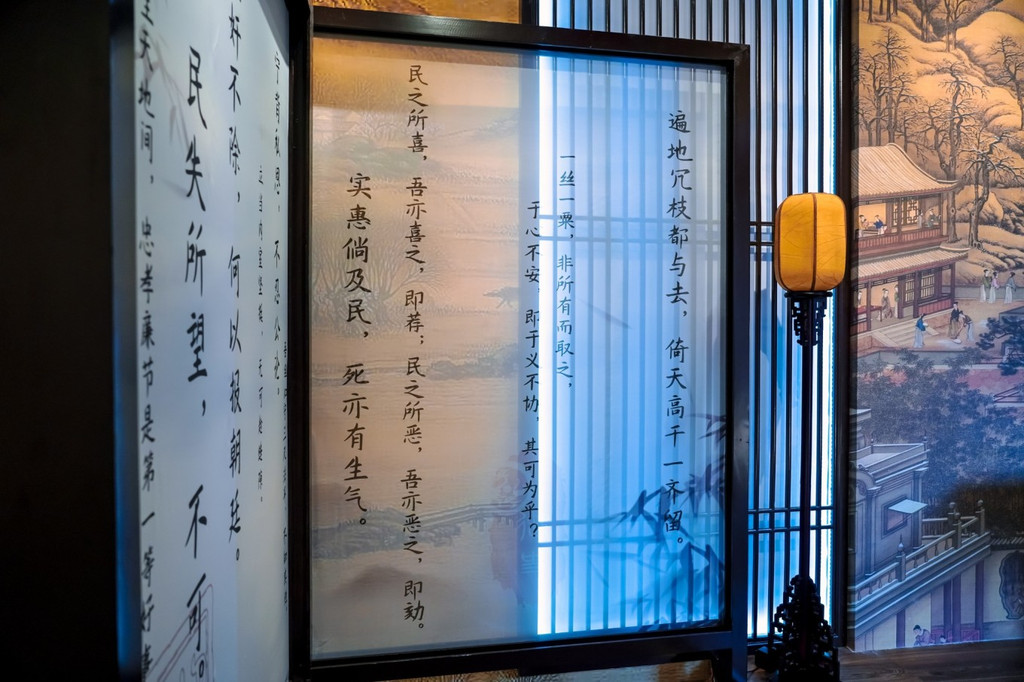 遍地冗枝都与去，倚天高干一齐留。
一丝一粟，非所有而取之，
于心不安，即于义不协，其可为乎？
民之所喜，吾亦喜之，即荐；民之所恶，吾亦恶之，即劾。
实惠倘及民，死亦有生气。
不忍公论。
奸不除，何以报朝廷。
民失所望，不可。
天地间，忠孝廉节是第一等好事